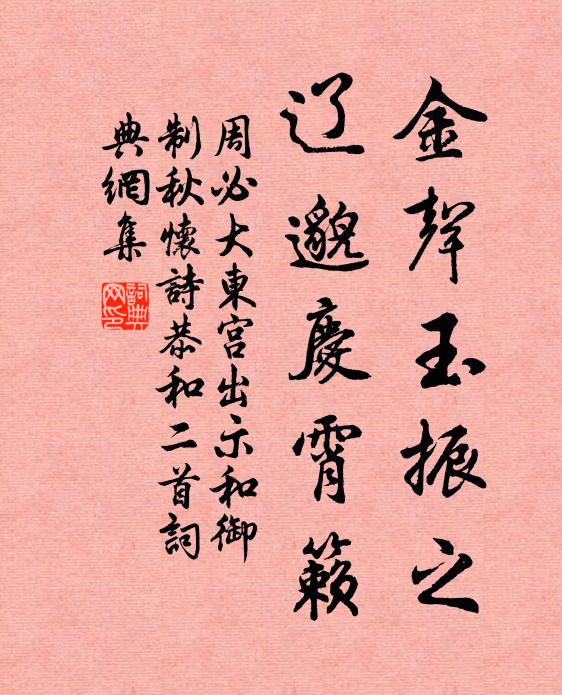 金聲玉振之
辽邈慶霄籟
周必大東宮出示和御
制秋懷詩恭和二首詞
典網集
詞典网印